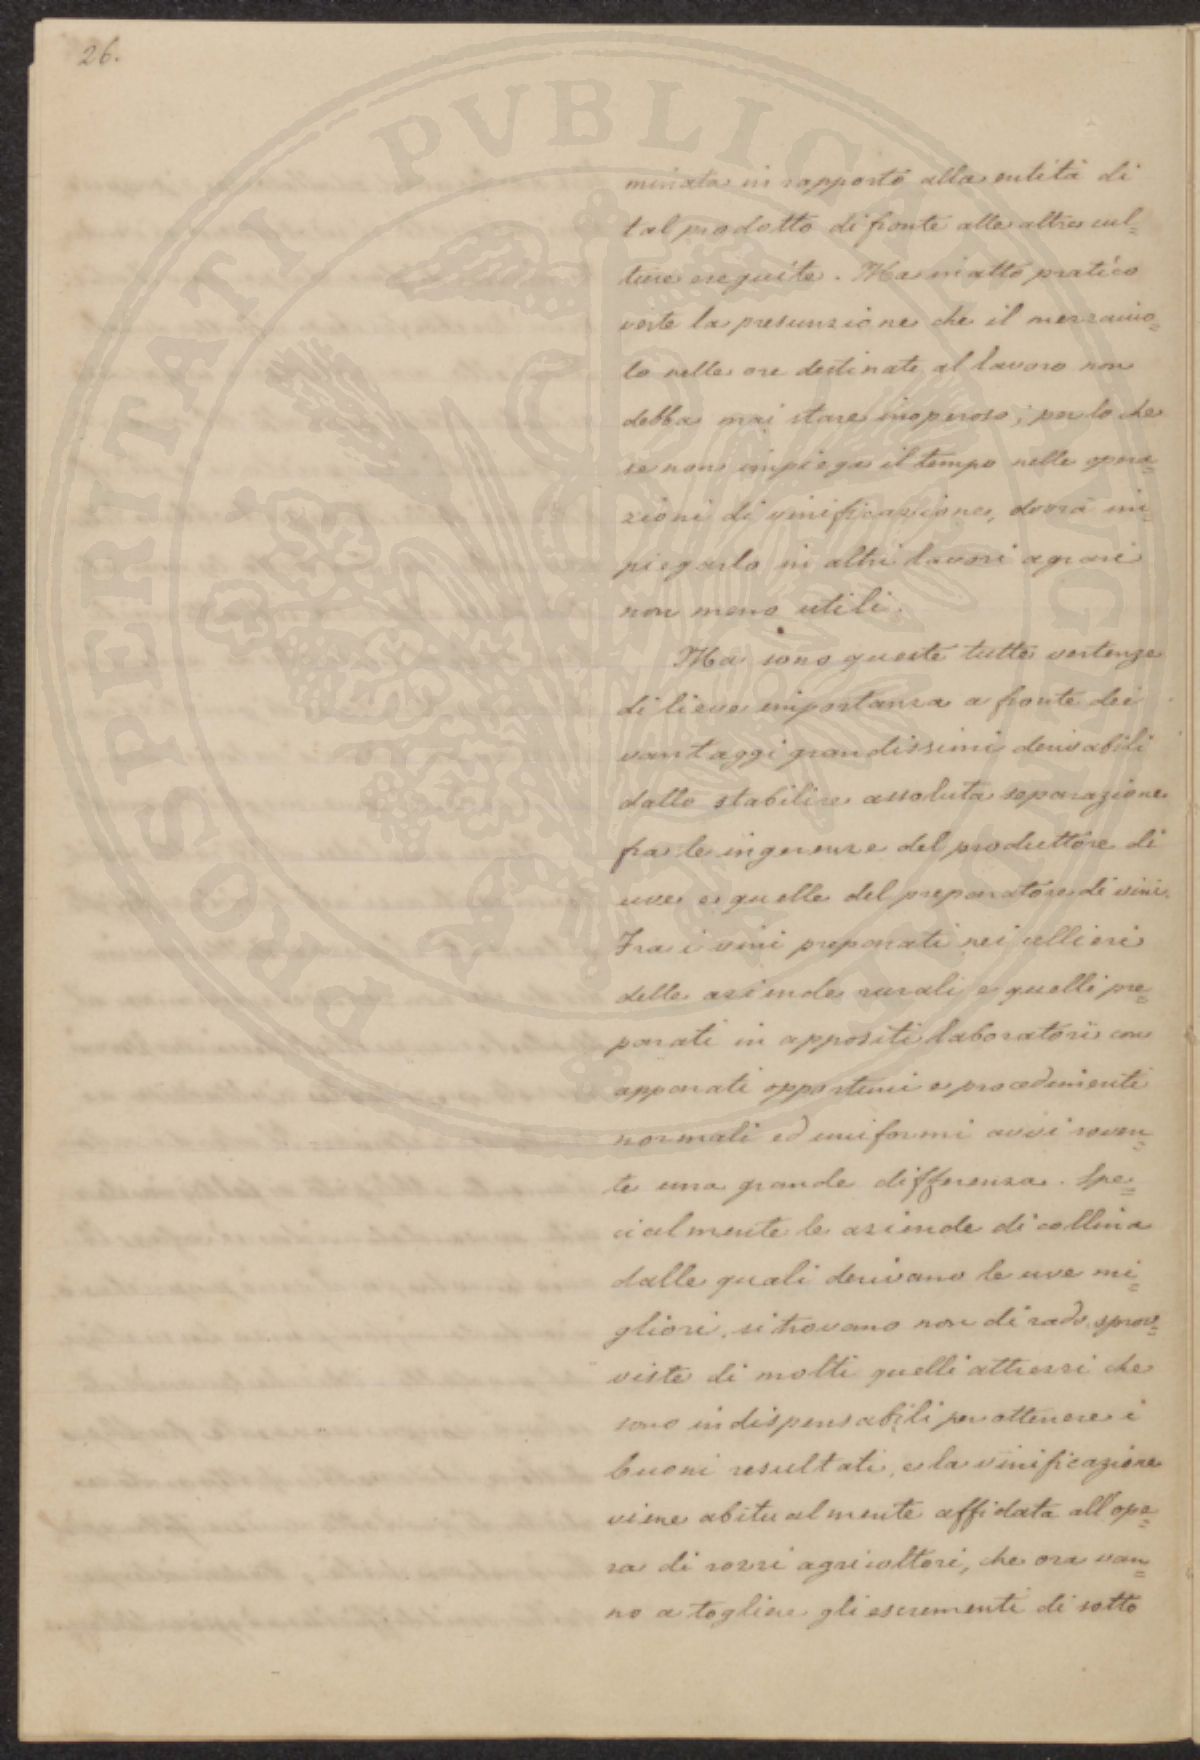 26.
minata in rapporto alla entità di
tal prodotto di fronte alle altre cul=
ture eseguite. Ma in atto pratico
veste la presunzione che il mezzaiuo=
lo nelle ore destinate al lavoro non
debba mai stare inoperoso; per lo che
se non impiega il tempo nelle opera=
zioni di vinificazione, dovrà im=
piegarlo in altri lavori agrari
non meno utili.
Ma sono queste tutte vertenze
di lieve importanza a fronte dei
vantaggi grandissimi derivabili
dallo stabilire assoluta separazione
fra le ingerenze del produttore di
uve e quelle del preparatore di vini.
Fra i vini preparati nei cellieri
delle aziende rurali e quelli pre=
parati in appositi laboratorii con
apparati opportuni e procedimenti
normali ed uniformi avvi soven=
te una grande differenza. Spe=
cialmente le aziende di collina
dalle quali derivano le uve mi=
gliori, si trovano non di rado sprov=
viste di molti quelli attrezzi che
sono indispensabili per ottenere i
buoni resultati, e la vinificazione
viene abitualmente affidata all'ope=
ra di rozzi agricoltori, che ora van=
no a togliere gli escrementi di sotto
PROSPERITATI PVBLICAE AVGENDAE